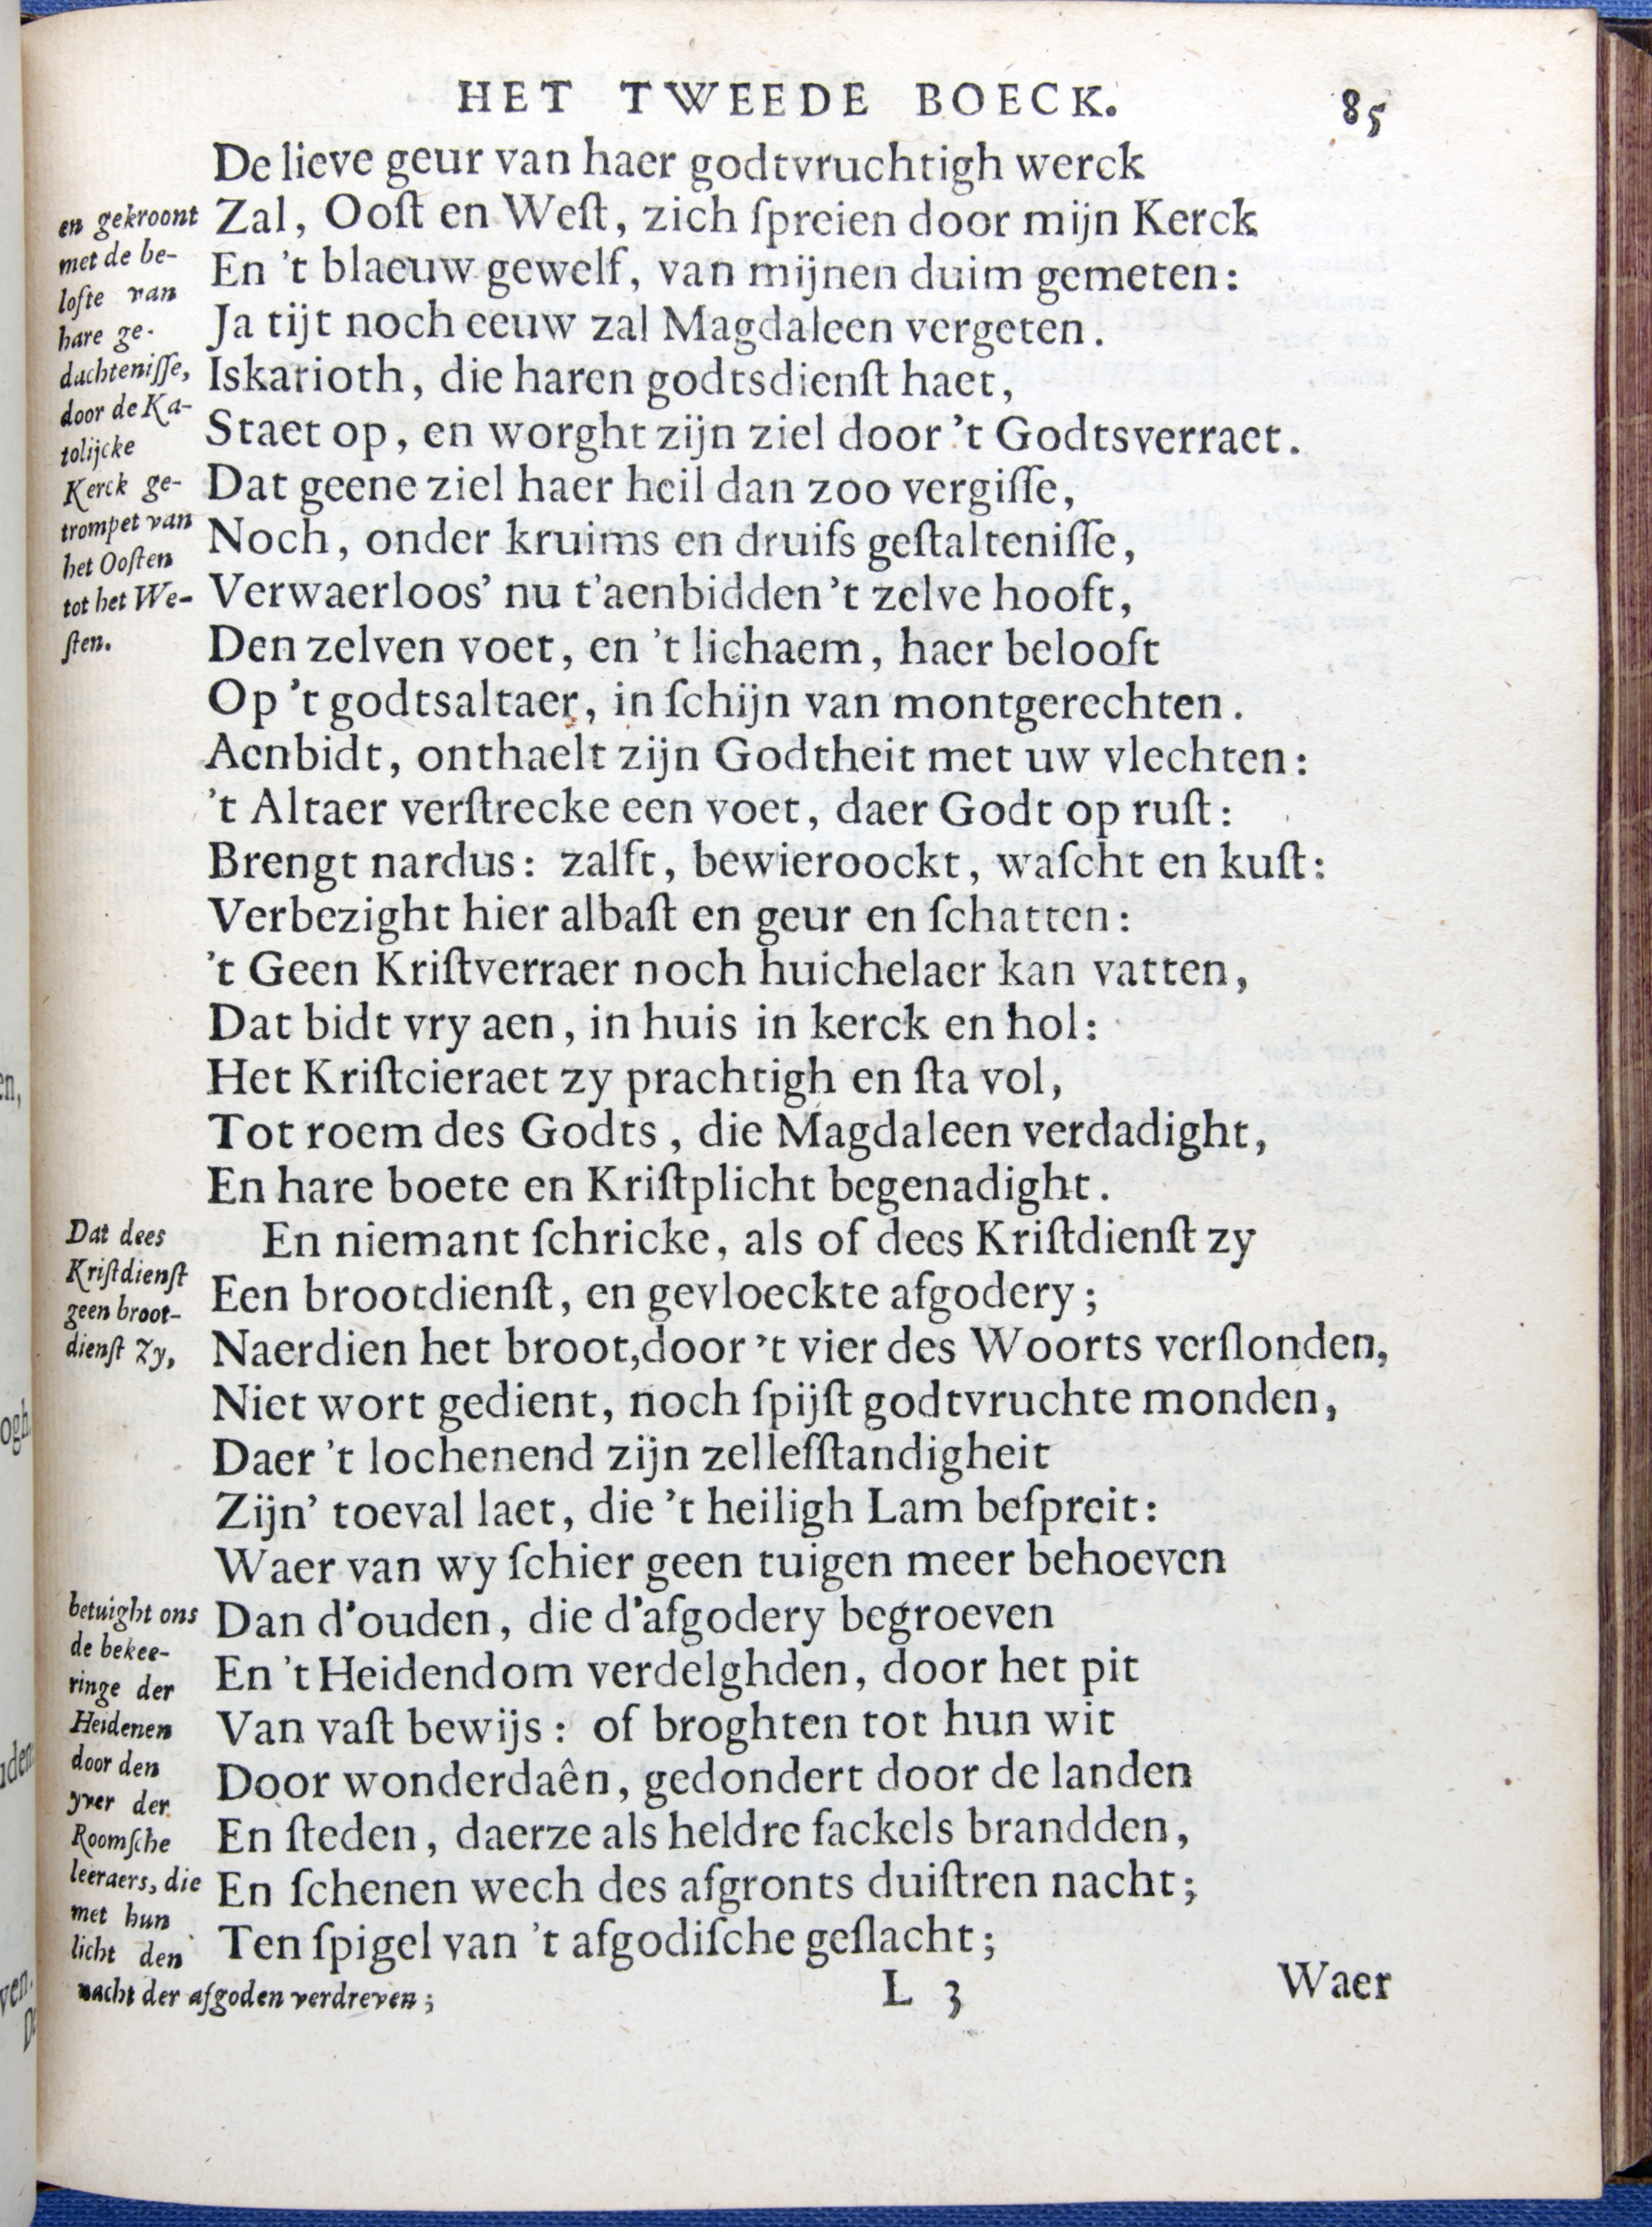 HET TWEEDE BOECK. 85
De lieve geur van haer godtvruchtigh werck
Zal, Ooſt en Weſt, zich ſpreien door mijn Kerck
En 't blaeuw gewelf, van mijnen duim gemeten:
Ja tijt noch eeuw zal Magdaleen vergeten.
Iskarioth, die haren godtsdienſt haet,
Staet op, en worght zijn ziel door 't Godtsverraet.
Dat geene ziel haer heil dan zoo vergiſſe,
Noch, onder kruims en druifs geſtalteniſſe,
Verwaerloos' nu t'aenbidden 't zelve hooft,
Den zelven voet, en 't lichaem, haer belooft
Op 't godtsaltaer, in ſchijn van montgerechten.
Aenbidt, onthaelt zijn Godtheit met uw vlechten:
't Altaer verſtrecke een voet, daer Godt op ruſt:
Brengt nardus: zalft, bewieroockt, waſcht en kuſt:
Verbezight hier albaſt en geur en ſchatten:
't Geen Kriſtverraer noch huichelaer kan vatten,
Dat bidt vry aen, in huis in kerck en hol:
Het Kriſtcieraet zy prachtigh en ſta vol,
Tot roem des Godts, die Magdaleen verdadight,
En hare boete en Kriſtplicht begenadight.
En niemant ſchricke, als of dees Kriſtdienſt zy
Een brootdienſt, en gevloeckte afgodery;
Naerdien het broot, door 't vier des Woorts verſlonden,
Niet wort gedient, noch ſpijſt godtvruchte monden,
Daer 't lochenend zijn zelleſſtandigheit
Zijn' toeval laet, die 't heiligh Lam beſpreit:
Waer van wy ſchier geen tuigen meer behoeven
Dan d'ouden, die d'afgodery begroeven
En 't Heidendom verdelghden, door het pit
Van vaſt bewijs: of broghten tot hun wit
Door wonderdaên, gedondert door de landen
En ſteden, daerze als heldre fackels brandden,
En ſchenen wech des afgronts duiſtren nacht;
Ten ſpigel van 't afgodiſche geſlacht;
L 3 Waer
en gekroont
met de be-
lofte van
hare ge-
dachteniſſe,
door de Ka-
tolijcke
Kerck ge-
trompet van
het Ooſten
tot het We-
ſten.
Dat dees
Kriſtdienſt
geen broot-
dienſt zy,
betuight ons
de bekee-
ringe der
Heidenen
door den
yver der
Roomſche
leeraers, die
met hun
licht den
nacht der afgoden verdreven;